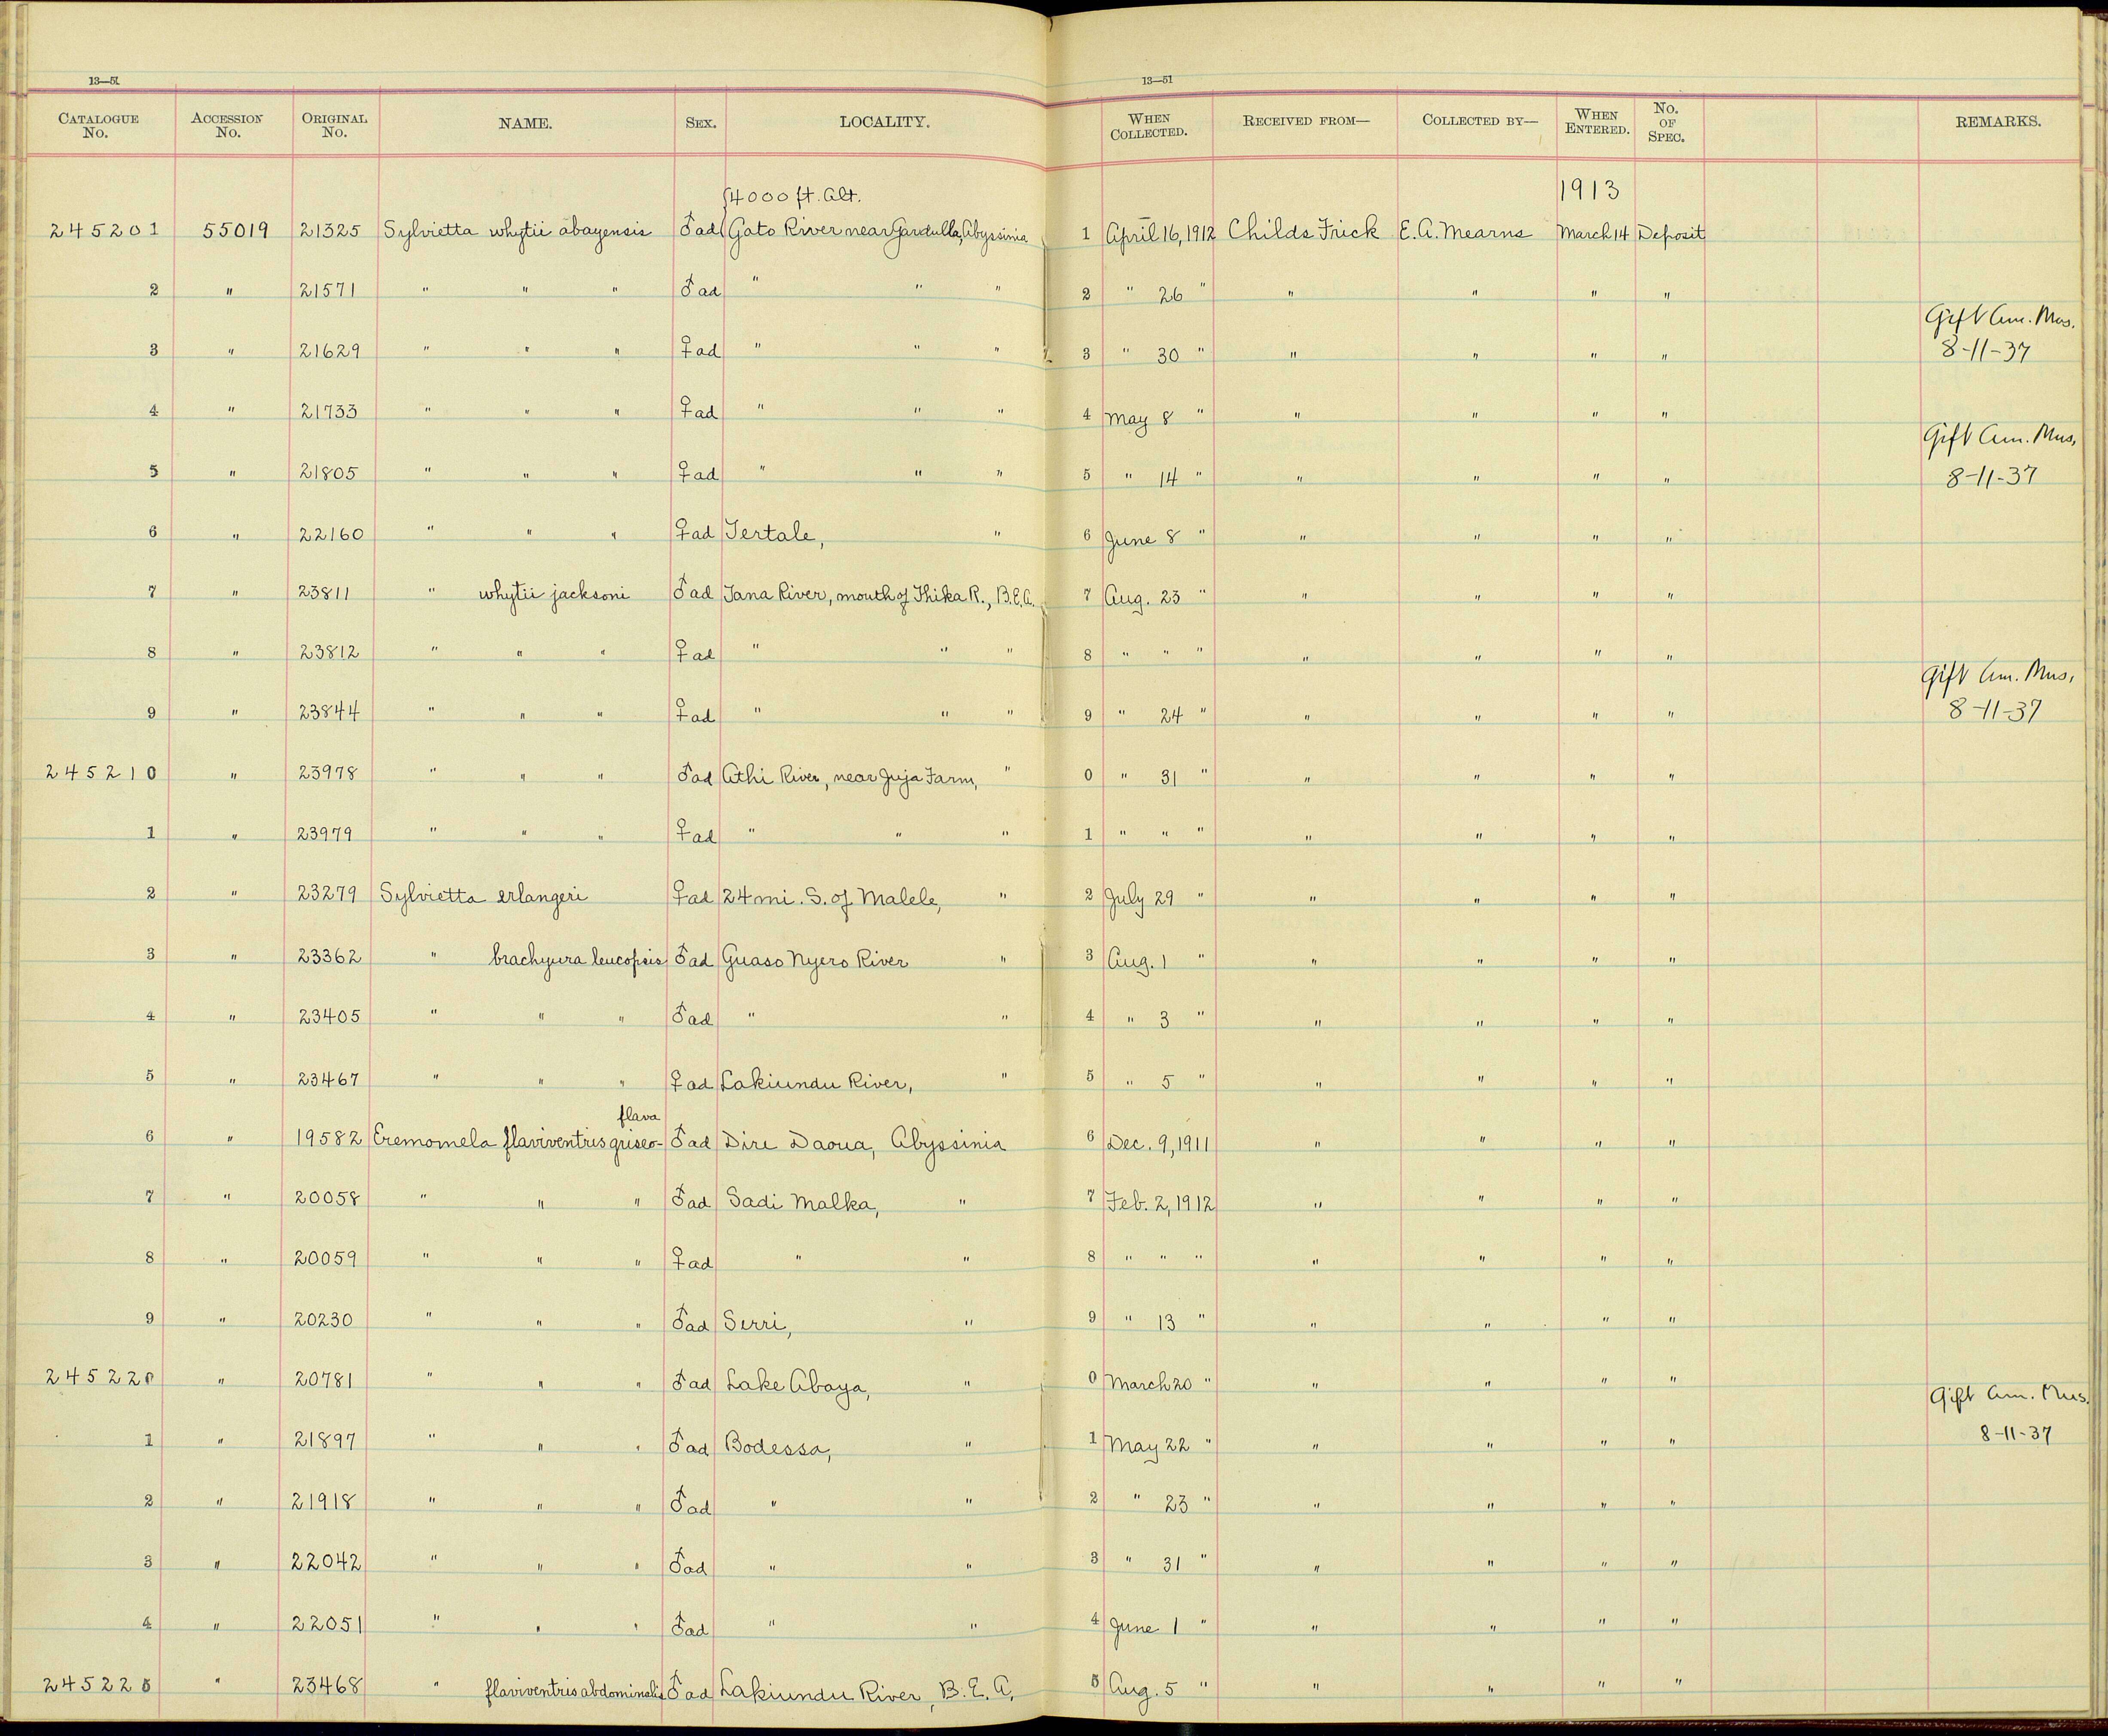 13—51 13—51
CATALOGUE No. ACCESSION No. ORIGINAL No. NAME. SEX. LOCALITY. WHEN COLLECTED. RECEIVED FROM— COLLECTED BY— WHEN ENTERED. No. OF SPEC. REMARKS.
4000 ft. Alt. 1913
245201 55019 21325 Sylvietta whytii abayensis ♂ad Gato River near Gardulla, Abyssinia 1 April 16, 1912 Childs Frick E. A. Mearns March 14 Deposit
2 " 21571 " " " ♂ad " " " 2 " 26 " " " " "
Gift Am. Mus.
3 " 21629 " " " ♀ad " " " 3 " 30 " " " " " 8-11-37
4 " 21733 " " " ♀ad " " " 4 May 8 " " " " "
Gift Am. Mus.
5 " 21805 " " " ♀ad " " " 5 " 14 " " " " " 8-11-37
6 " 22160 " " " ♀ad Tertale, " 6 June 8 " " " " "
7 " 23811 " whytii jacksoni ♂ad Tana River, mouth of Thika R., B.E.A. 7 Aug. 23 " " " " "
8 " 23812 " " " ♀ad " " " 8 " " " " " " "
Gift Am. Mus.
9 " 23844 " " " ♀ad " " " 9 " 24 " " " " " 8-11-37
245210 " 23978 " " " ♂ad Athi River, near Juja Farm, " 0 " 31 " " " " "
1 " 23979 " " " ♀ad " " " 1 " " " " " " "
2 " 23279 Sylvietta erlangeri ♀ad 24 mi. S. of Malele, " 2 July 29 " " " " "
3 " 23362 " brachyura leucopsis ♂ad Guaso Nyero River " 3 Aug. 1 " " " " "
4 " 23405 " " " ♂ad " " 4 " 3 " " " " "
5 " 23467 " " " ♀ad Lakiundu River, " 5 " 5 " " " " "
flava
6 " 19582 Eremomela flaviventris griseo- ♂ad Dire Daoua, Abyssinia 6 Dec. 9, 1911 " " " "
7 " 20058 " " " ♂ad Sadi Malka, " 7 Feb. 2, 1912 " " " "
8 " 20059 " " " ♀ad " " 8 " " " " " " "
9 " 20230 " " " ♂ad Serri, " 9 " 13 " " " " "
245220 " 20781 " " " ♂ad Lake Abaya, " 0 March 20 " " " " "
Gift Am. Mus.
1 " 21897 " " " ♂ad Bodessa, " 1 May 22 " " " " " 8-11-37
2 " 21918 " " " ♂ad " " 2 " 23 " " " " "
3 " 22042 " " " ♂ad " " 3 " 31 " " " " "
4 " 22051 " " " ♂ad " " 4 June 1 " " " " "
245225 " 23468 " flaviventris abdominalis ♂ad Lakiundu River, B. E. A. 5 Aug. 5 " " " " "